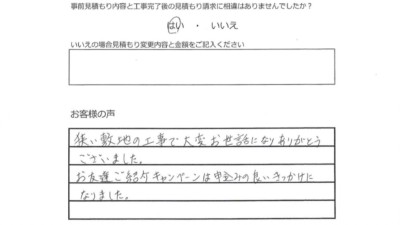 事前見積もり内容と工事完了後の見積もり請求に相違はありませんでしたか?
はい ・ いいえ
いいえの場合見積もり変更内容と金額をご記入ください
お客様の声
狭い敷地の工事で大変お世話になりありがとう
ございました。
お友達ご紹介キャンペーンは申込みの良いきっかけに
なりました。